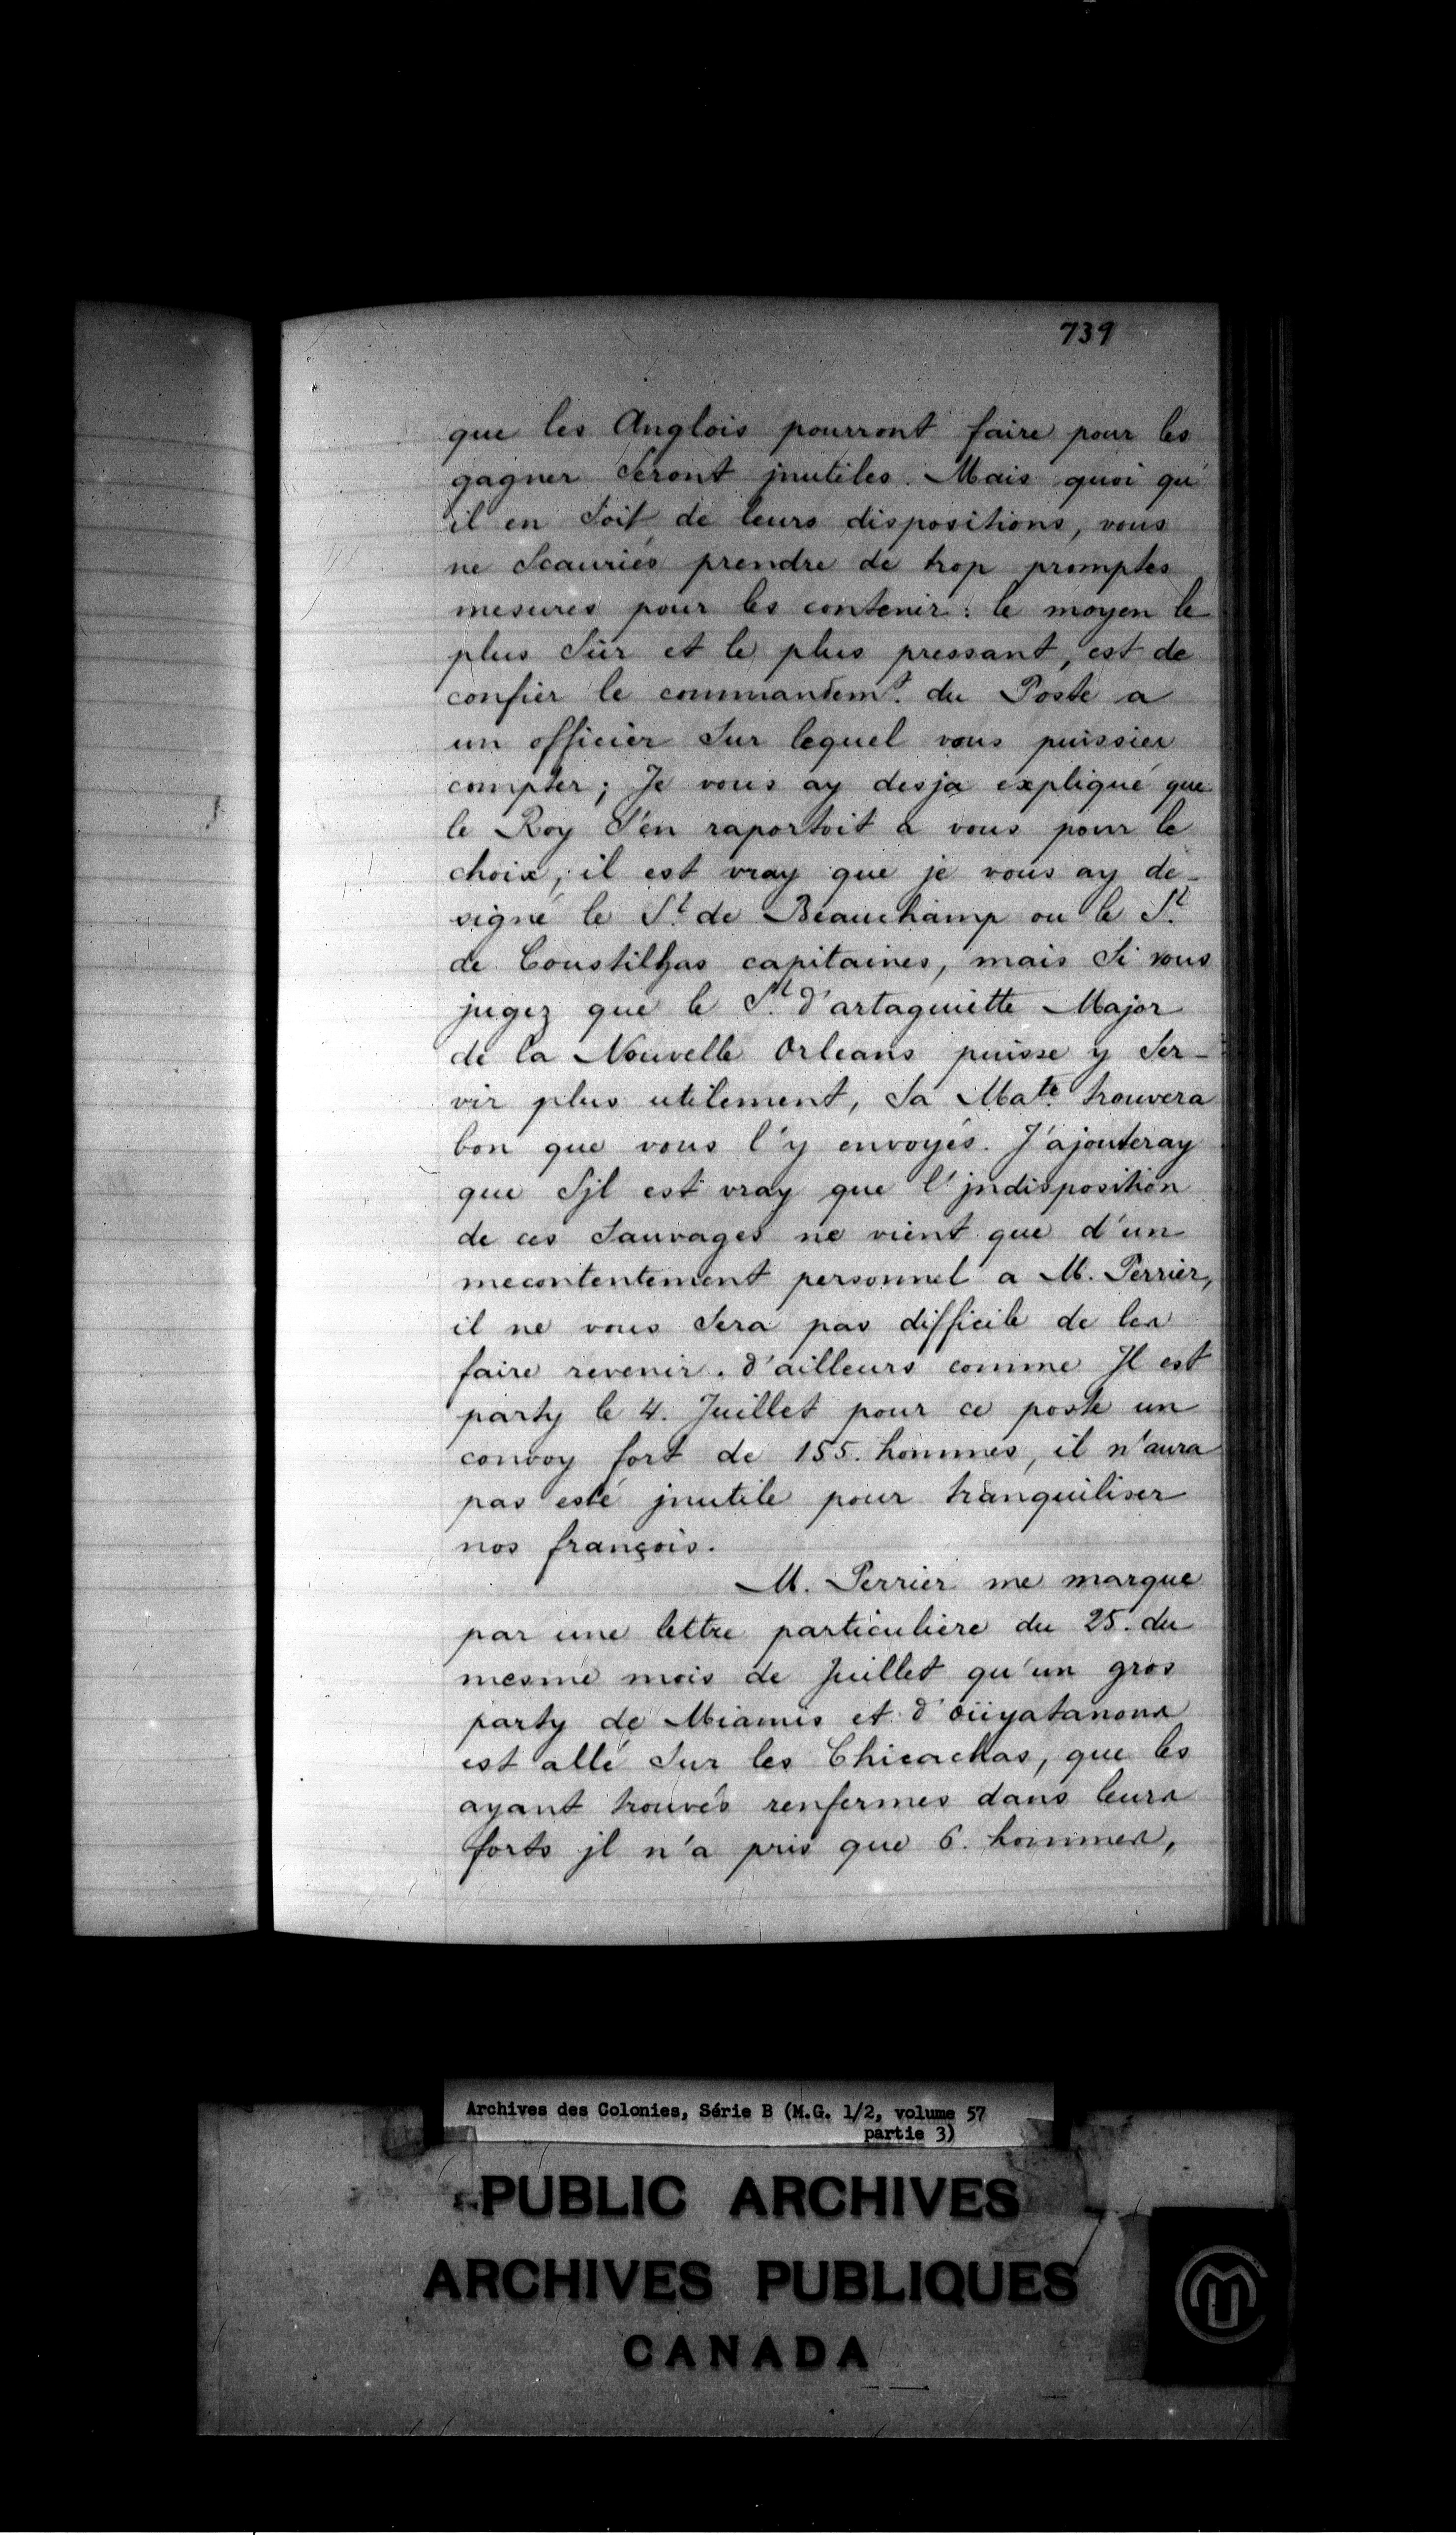 739
que les Anglois pourront faire pour les
gagner Seront jnutiles. Mais quoi qu'
il en Soit de leurs dispositions, vous
ne Scauriés prendre de trop promptes
mesures pour les contenir: le moyen le
plus Sûr et le plus pressant, est de
confier le commandemt. du Poste a
un officier Sur lequel vous puissier
compter; Je vous ay desja expliqué que
le Roy S'en raportoit a vous pour le
choix, il est vray que je vous ay de-
signé le St. de Beauchamp ou le St.
de Coustilhas capitaines, mais Si vous
jugez que le St. d'artaguiette Major
de la Nouvelle Orleans puisse y Ser-
vir plus utilement, Sa Mate. trouvera
bon que vous l'y envoyés. J'ajouteray
que Sjl est vray que l'jndisposition
de ces Sauvages ne vient que d'un
mecontentement personnel a M. Perrier,
il ne vous Sera pas difficile de les
faire revenir. d'ailleurs comme Jl est
party le 4. Juillet pour ce poste un
convoy fort de 155. hommes, il n'aura
pas esté jnutile pour tranquiliser
nos françois.
M. Perrier me marque
par une lettre particulière du 25. du
mesme mois de Juillet qu'un gros
party de Miamis et d'oüyatanons
est allé Sur les Chicachas, que les
ayant trouvés renfermes dans leurs
forts jl n'a pris que 6. hommes,
Archives des Colonies, Série B (M.G. 1/2, volume 57
partie 3)
PUBLIC ARCHIVES
ARCHIVES PUBLIQUES
CANADA